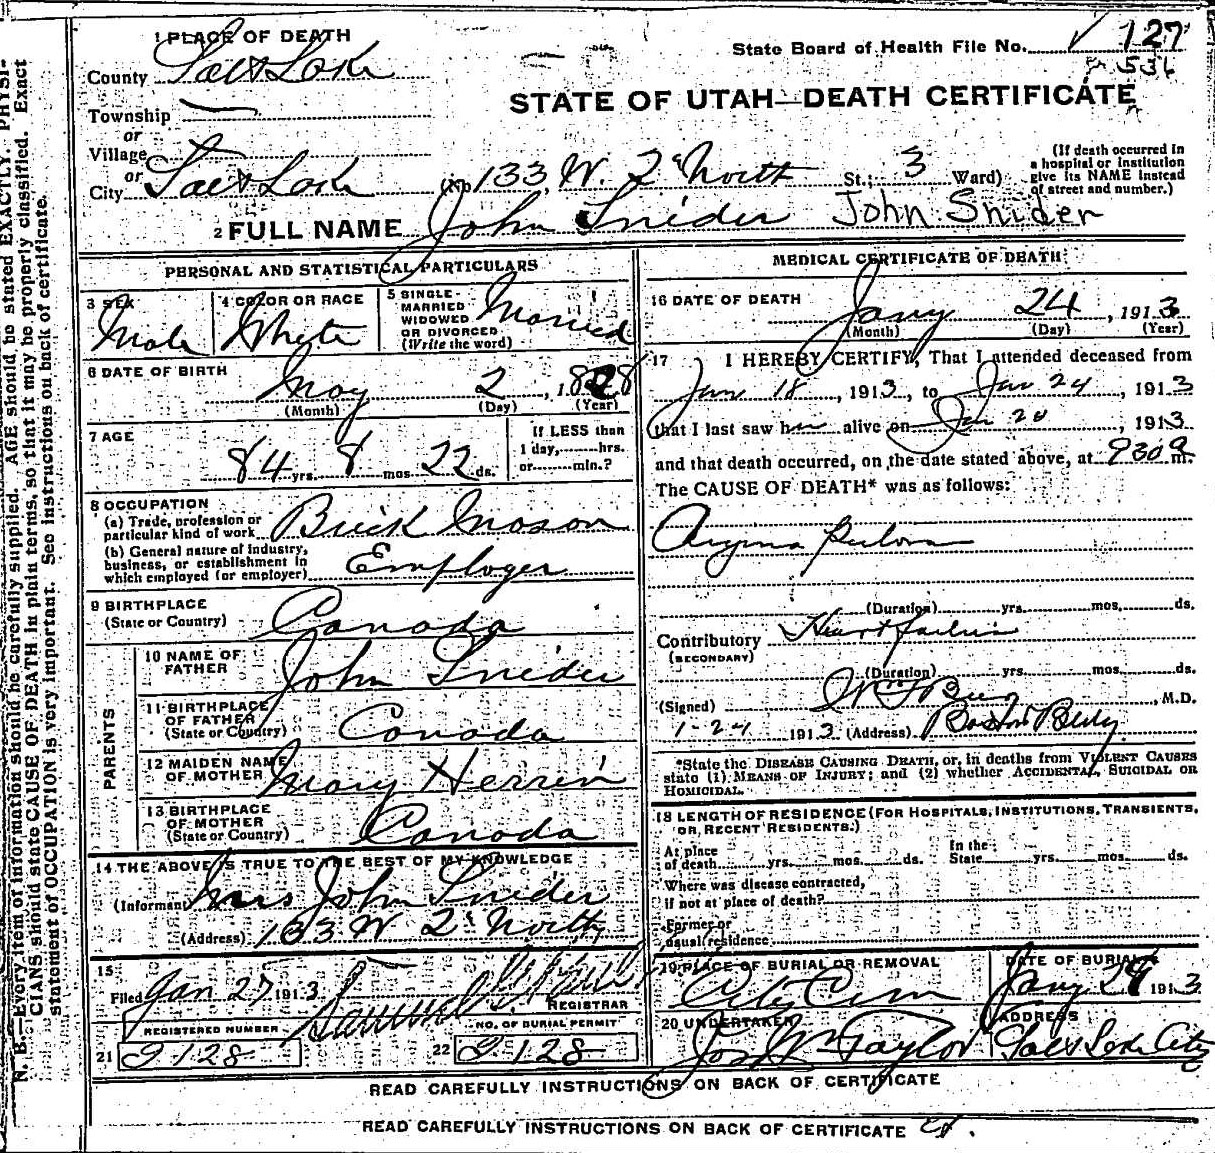 1 PLACE OF DEATH
County Salt Lake
Township
or
Village
or
City Salt Lake (No 133 W. 2d North St.; 3 Ward)
(If death occurred in a hospital or institution give its NAME instead of street and number.)
State Board of Health File No. 127
536
STATE OF UTAH—DEATH CERTIFICATE
2 FULL NAME John Snider John Snider
PERSONAL AND STATISTICAL PARTICULARS
3 SEX Male
4 COLOR OR RACE White
5 SINGLE- MARRIED WIDOWED OR DIVORCED (Write the word) Married
6 DATE OF BIRTH
May 2, 1828
(Month) (Day) (Year)
7 AGE
84 yrs. 8 mos. 22 ds.
If LESS than 1 day, hrs. or min.?
8 OCCUPATION
(a) Trade, profession or particular kind of work Brick Mason
(b) General nature of industry, business, or establishment in which employed (or employer) Employer
9 BIRTHPLACE
(State or Country) Canada
PARENTS
10 NAME OF FATHER John Snider
11 BIRTHPLACE OF FATHER (State or Country) Canada
12 MAIDEN NAME OF MOTHER Mary Herrin
13 BIRTHPLACE OF MOTHER (State or Country) Canada
14 THE ABOVE IS TRUE TO THE BEST OF MY KNOWLEDGE
(Informant Mrs John Snider
(Address) 133 W 2d North
15
Filed Jan 27 1913 Samuel
REGISTRAR
REGISTERED NUMBER
21 9128
NO. OF BURIAL PERMIT
22 9128
MEDICAL CERTIFICATE OF DEATH
16 DATE OF DEATH Jany 24, 1913
(Month) (Day) (Year)
17 I HEREBY CERTIFY, That I attended deceased from
Jan 18, 1913, to Jan 24, 1913
that I last saw him alive on Jan, 1913
and that death occurred, on the date stated above, at 930 a m.
The CAUSE OF DEATH* was as follows:
Angina
(Duration) yrs. mos. ds.
Contributory Heart failure
(SECONDARY)
(Duration) yrs. mos. ds.
(Signed), M.D.
1-24 1913 (Address) Boston Bldg
*State the DISEASE CAUSING DEATH, or, in deaths from VIOLENT CAUSES
state (1) MEANS OF INJURY; and (2) whether ACCIDENTAL, SUICIDAL OR
HOMICIDAL.
18 LENGTH OF RESIDENCE (FOR HOSPITALS, INSTITUTIONS, TRANSIENTS,
OR RECENT RESIDENTS.)
At place of death yrs. mos. ds. In the State yrs. mos. ds.
Where was disease contracted,
if not at place of death?
Former or
usual residence
19 PLACE OF BURIAL OR REMOVAL City Cem
DATE OF BURIAL Jany 29 1913
20 UNDERTAKER Jos Wm Taylor
ADDRESS Salt Lake City
READ CAREFULLY INSTRUCTIONS ON BACK OF CERTIFICATE
READ CAREFULLY INSTRUCTIONS ON BACK OF CERTIFICATE
N. B.—Every item of information should be carefully supplied. AGE should be stated EXACTLY. PHYSI-
CIANS should state CAUSE OF DEATH in plain terms, so that it may be properly classified. Exact
statement of OCCUPATION is very important. See instructions on back of certificate.